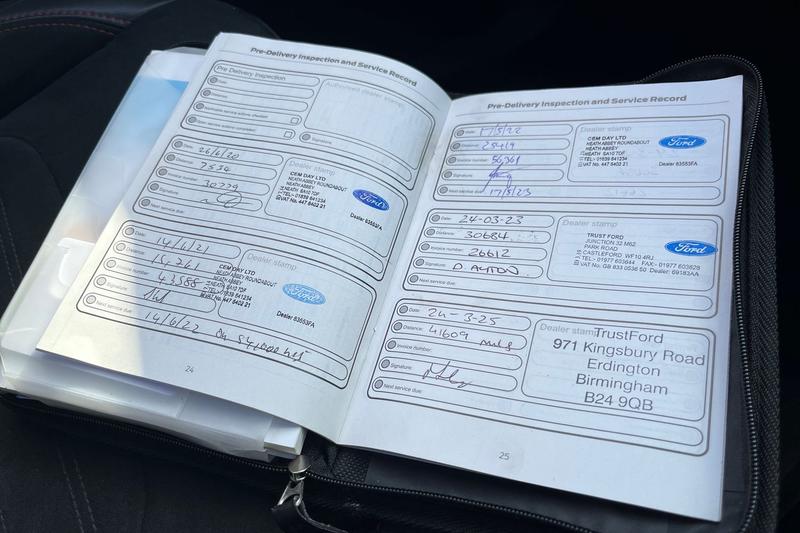 Pre-Delivery Inspection and Service Record
Pre Delivery Inspection
Date:
Distance:
Applicable service actions checked
Open service actions completed
Signature:
Authorised dealer stamp
Date: 26/6/20
Distance: 7534
Invoice number: 30779
Signature:
Next service due:
Dealer stamp
CEM DAY LTD
NEATH ABBEY ROUNDABOUT
NEATH ABBEY
NEATH SA10 7DF
TEL- 01639 641234
VAT No. 447 6402 21
Ford
Dealer 63553FA
Date: 14/6/21
Distance: 15,261
Invoice number: 43588
Signature:
Next service due:
14/6/22 OR
Dealer stamp
CEM DAY LTD
NEATH ABBEY ROUNDABOUT
NEATH ABBEY
NEATH SA10 7DF
TEL- 01639 641234
VAT No. 447 6402 21
Ford
Dealer 63553FA
24
Pre-Delivery Inspection and Service Record
Date: 17/5/22
Distance: 25419
Invoice number: 56,361
Signature:
Next service due: 17/5/23
Dealer stamp
CEM DAY LTD
NEATH ABBEY ROUNDABOUT
NEATH ABBEY
NEATH SA10 7DF
TEL- 01639 641234
VAT No. 447 6402 21
Ford
Dealer 63553FA
Date: 24-03-23
Distance: 30684
Invoice number: 26612
Signature:
Next service due:
Dealer stamp
TRUST FORD
JUNCTION 32 M62
PARK ROAD
CASTLEFORD. WF10 4RJ
TEL:- 01977 603644 FAX:- 01977 603628
VAT No. GB 833 0536 50 Dealer: 69183AA
Ford
Date: 24-3-25
Distance: 41609 mls
Invoice number:
Signature:
Next service due:
Dealer stamp
TrustFord
971 Kingsbury Road
Erdington
Birmingham
B24 9QB
25